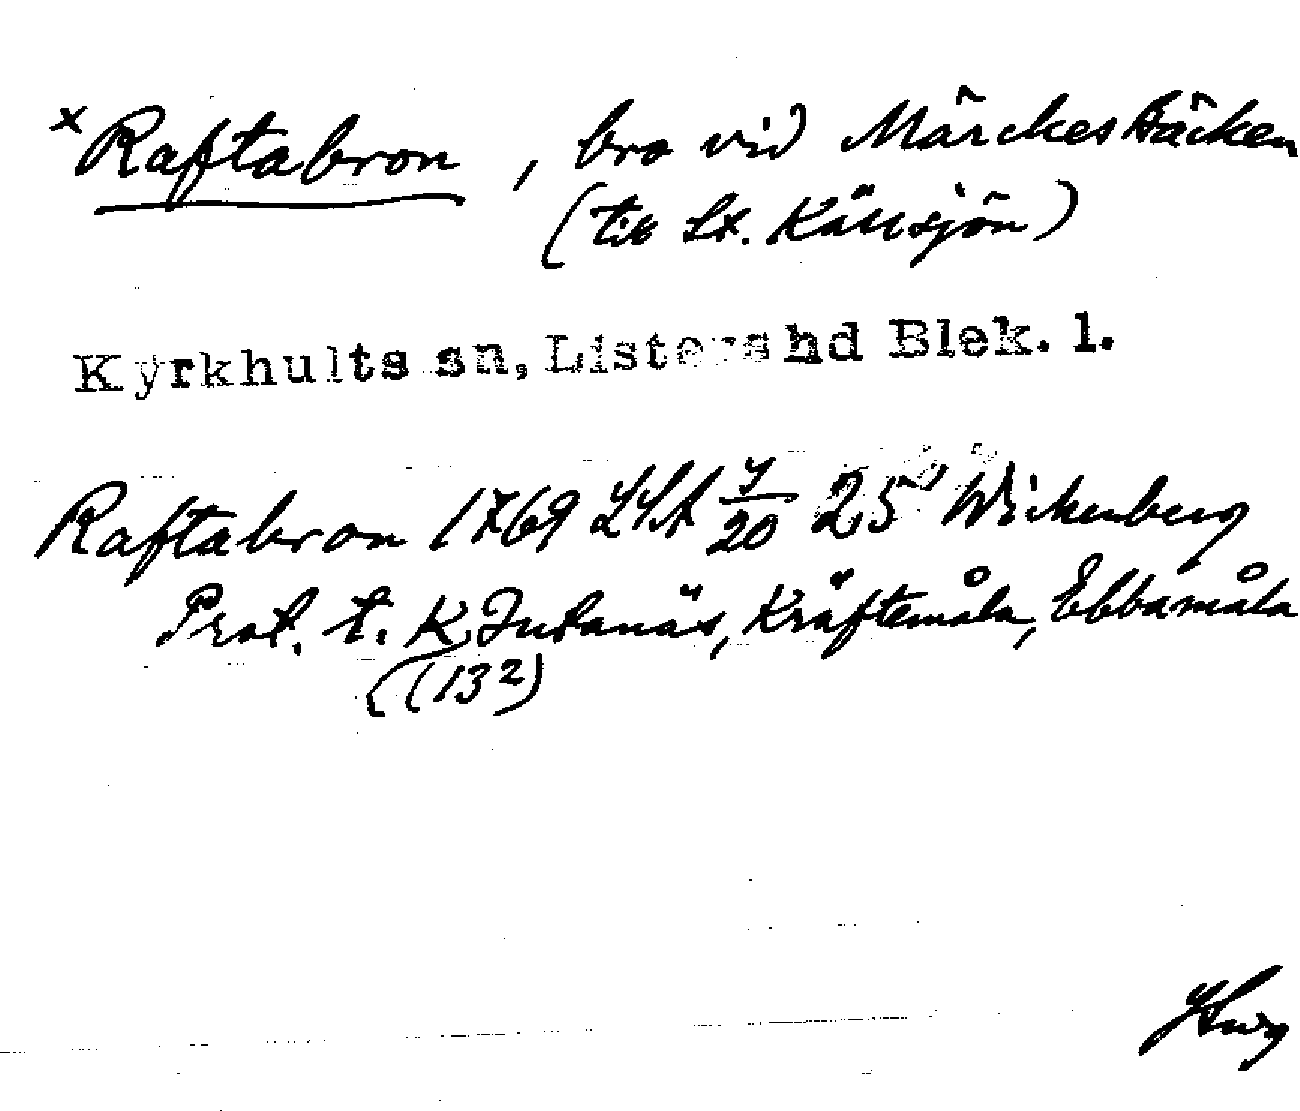 x Raftabron, bro vid Märckesbäcken
(till St. Källsjön)
Kyrkhults sn, Listers hd Blek. l.
Raftabron 1769 LSA y/20 25 Wickenberg
Prot. t. K Jutanäs, Kräftemåla, Ebbamåla
(132)